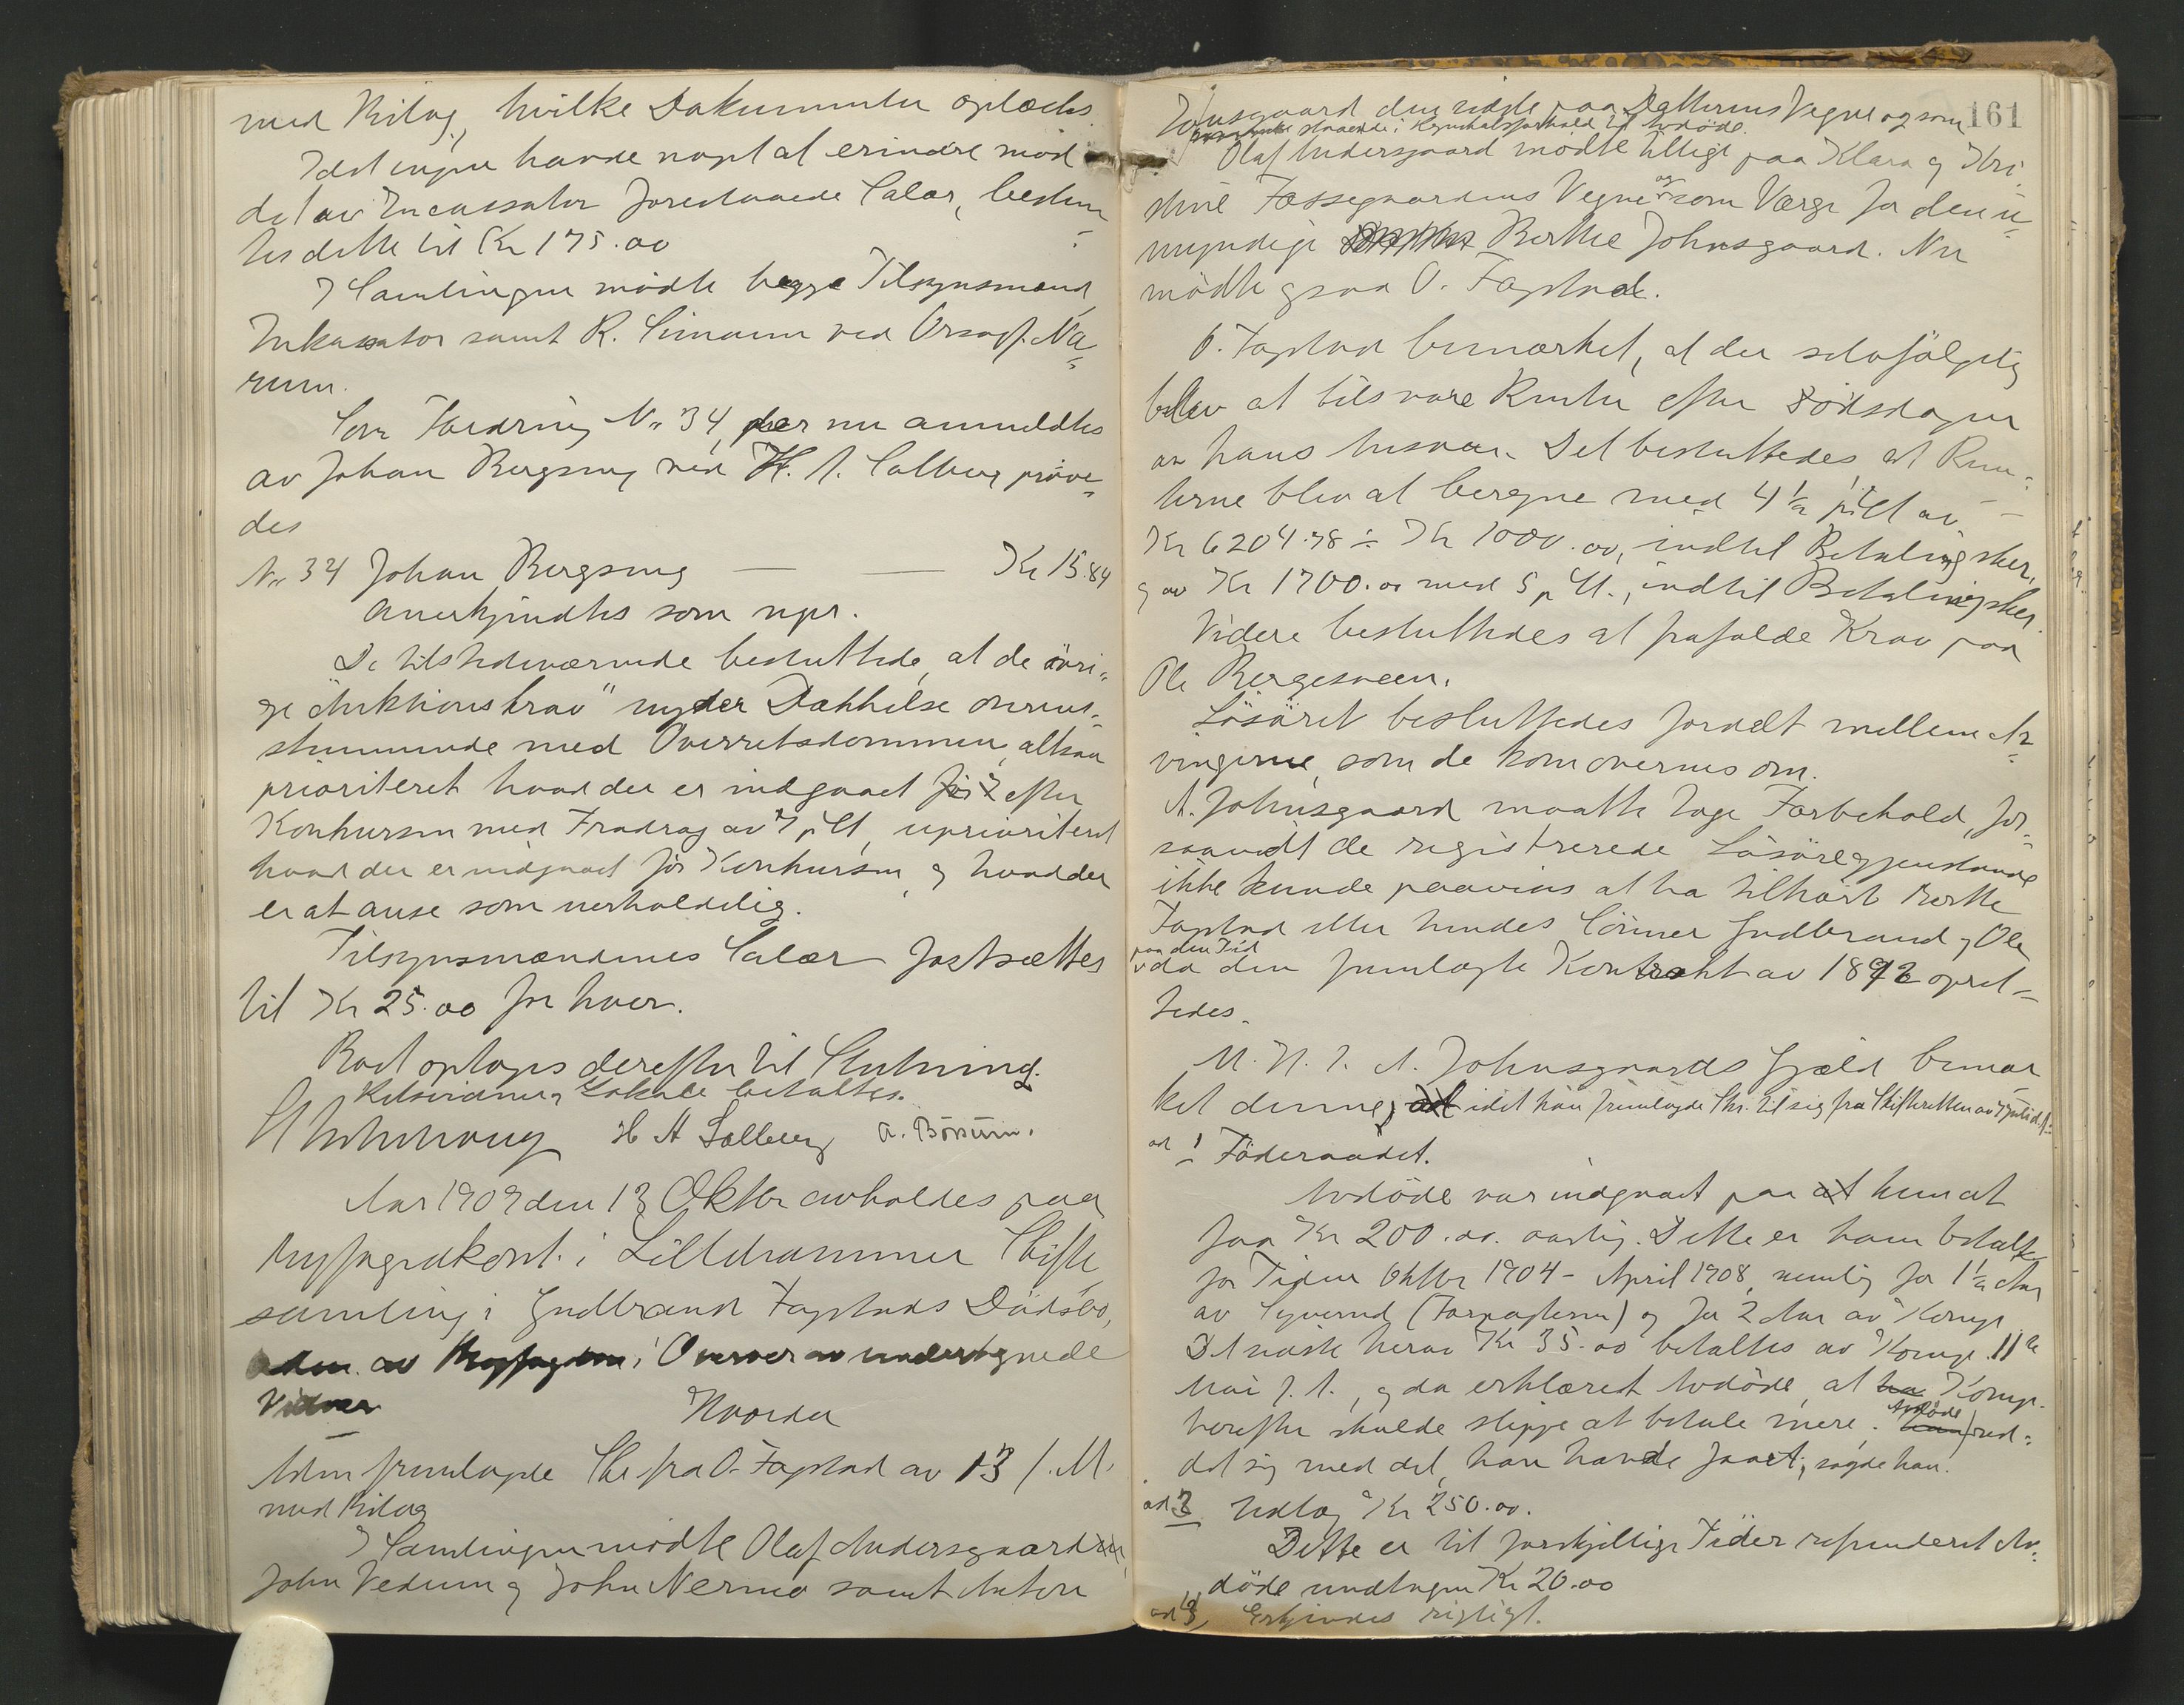 med Bilag, hvilke Dokumenter oplæstes.
Idet ingen havde noget at erindre mod
det av Incassator foreslaaede Salær, bestem-
tes dette til Kr 175.00
I Samlingen mødte begge Tilsynsmænd,
Inkassator samt R. Simonsen ved Orsagf. Na-
rum.
Som Fordring No 34, der nu anmeldtes
av Johan Bergseng ved H. A. Solberg prøve-
des
No 34 Johan Bergseng — — Kr 15.84
Anerkjendtes som upr.
De tilstedeværende besluttede, at de øvri-
ge "Auktionskrav" nyder Dækkelse overens-
stemmende med Overretsdommen, altsaa
prioriteret hvad der er indgaaet efter
Konkursen med Fradrag av 7 pCt, uprioriteret
hvad der er indgaaet før Konkursen, og hvad der
er at anse som uerholdelig.
Tilsynsmændenes Salær fastsættes
til Kr 25.00 for hver.
Boet optages derefter til Slutning.
Retsvidner, Lokale betaltes.
H A Solberg A. Børsum.
Aar 1909 den 13 Oktbr avholdes paa
Byfogedkont. i Lillehammer Skifte
samling i Gudbrand Fagstads Dødsbo,
i Overvær av undertegnede
Vidner
Hvorda
Adm fremlagde Skr fra O. Fagstad av 13 f. M.
med Bilag
I Samlingen mødte Olaf Andersgaard
John Vedum og John Nermo samt Anton
161
Johnsgaard den sidste paa Datterens Vegne og som
staaende i Regnskabsforhold til Avdøde.
Olaf Andersgaard mødte tillige paa Klara og Kri
stine Fossegaardens Vegne og som Værge for den u-
myndige Berthe Johnsgaard. Nu
mødte ogsaa O. Fagstad.
O. Fagstad bemærket, at der selvfølgelig
blev at tilsvare Renter efter Dødsdagen
av hans Ansvar. Det besluttedes at Ren-
terne blev at beregne med 4 1/2 pCt av
Kr 6204.78 ÷ Kr 1000.00, indtil Betaling sker,
og av Kr 1700.00 med 5 pCt., indtil Betaling sker.
Videre besluttedes at frafalde Krav paa
Ole Bergesveen.
Løsøret besluttedes fordelt mellem Ar-
vingerne, som de kom overens om.
A. Johnsgaard maatte tage Forbehold, for-
saavidt de registrerede Løsøregjenstande
ikke kunde paavises at ha tilhørt Berthe
Fagstad eller hendes Sønner Gudbrand og Ole
paa den Tid
da den fremlagte Kontrakt av 1892 opret-
tedes.
M. H. t. A. Johnsgaards Gjæld bemær
ket denne, idet han fremlagde Skr. til sig fra Skifteretten av 7 Juli d. A:
ad 1 Føderaadet.
Avdøde var indgaaet paa kun at
faa Kr 200.00 aarlig. Dette er ham betalt
for Tiden Oktbr 1904 – April 1908, nemlig for 1 1/2 Aar
av Syverud (Forpagteren) og for 2 Aar av Komp.
Det sidste herav Kr 35.00 betaltes av Komp. 11te
Mai f. A., og da erklæret Avdøde, at Komp.
herefter skulde slippe at betale mere. Avdøde red-
det sig med det, han havde faaet, sagde han.
ad 2 Udlæg Kr 250.00.
Dette er til forskjellige Tider refunderet Av-
døde undtagen Kr 20.00
ad 3, Erkjendes rigtigt.